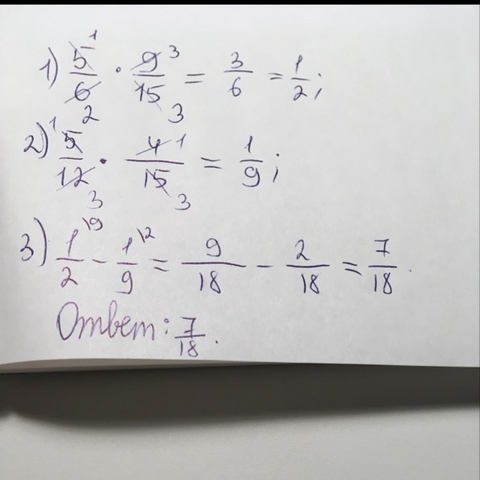 1) 5/6 · 9/15 = 3/6 = 1/2;
2) 5/12 · 4/15 = 1/9;
3) 1/2 - 1/9 = 9/18 - 2/18 = 7/18.
Ответ: 7/18.